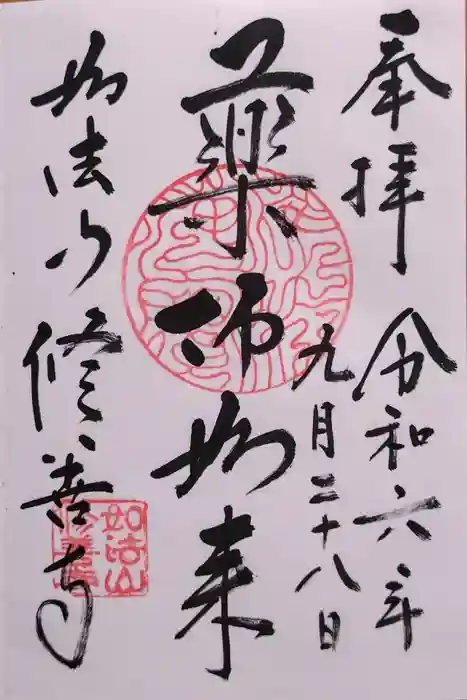 奉拝 令和六年
九月二十八日
薬師如来
如法山 修善寺
如法山